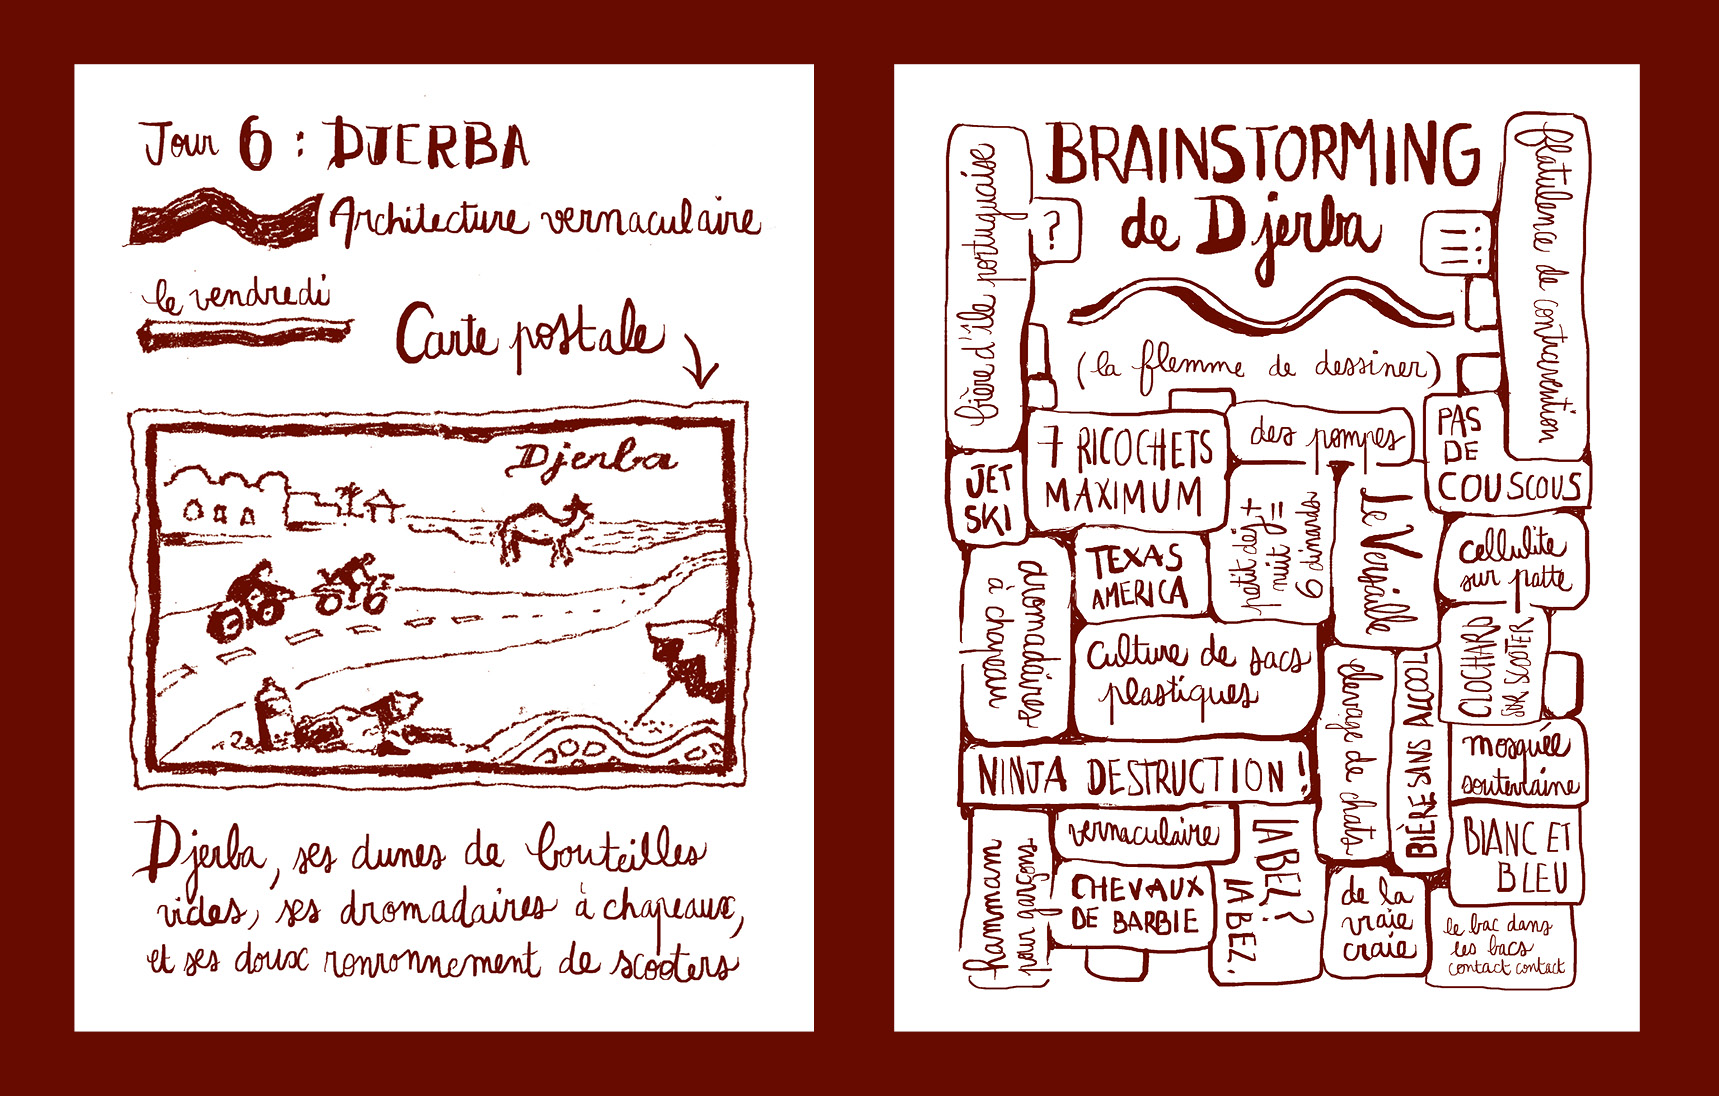 Jour 6 : DJERBA
Architecture vernaculaire
le vendredi
Carte postale
Djerba
Djerba, ses dunes de bouteilles
vides, ses dromadaires à chapeaux,
et ses doux ronronnement de scooters
BRAINSTORMING
de Djerba
(la flemme de dessiner)
bière d'île portugaise
?
!!!
flatulence de contravention
JET
SKI
7 RICOCHETS
MAXIMUM
des pompes
PAS
DE
COUSCOUS
dromadaires
à chapeau
TEXAS
AMERICA
petit déj +
nuit =
6 dinards
Le Versaille
cellulite
sur patte
Culture de sacs
plastiques
CLOCHARD
SUR SCOOTER
NINJA DESTRUCTION !
élevage de chats
BIÈRE SANS ALCOOL
mosquée
souterraine
hammam
pour garçons
vernaculaire
CHEVAUX
DE BARBIE
LABEZ ?
LABEZ.
de la
vraie
craie
BLANC ET
BLEU
le bac dans
les bacs
contact contact